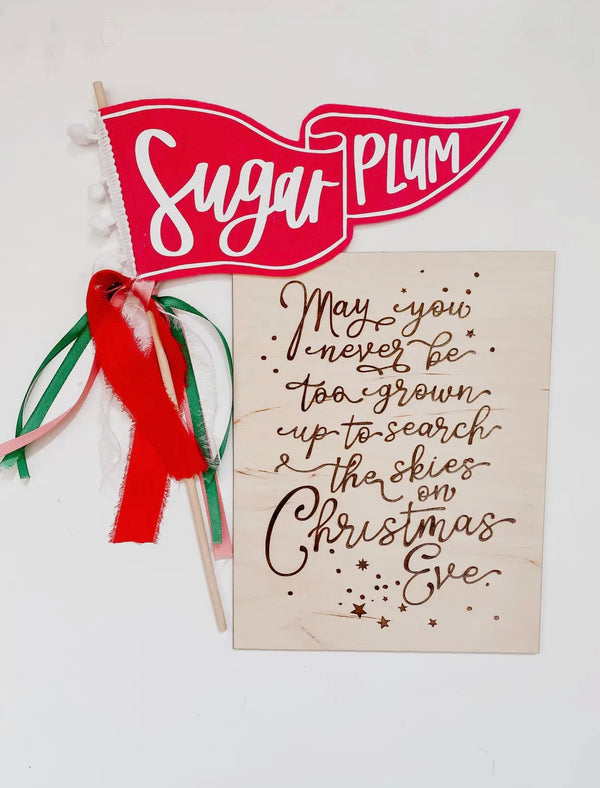 Sugar PLUM
May you
never be
too grown
up to search
the skies
on
Christmas
Eve.